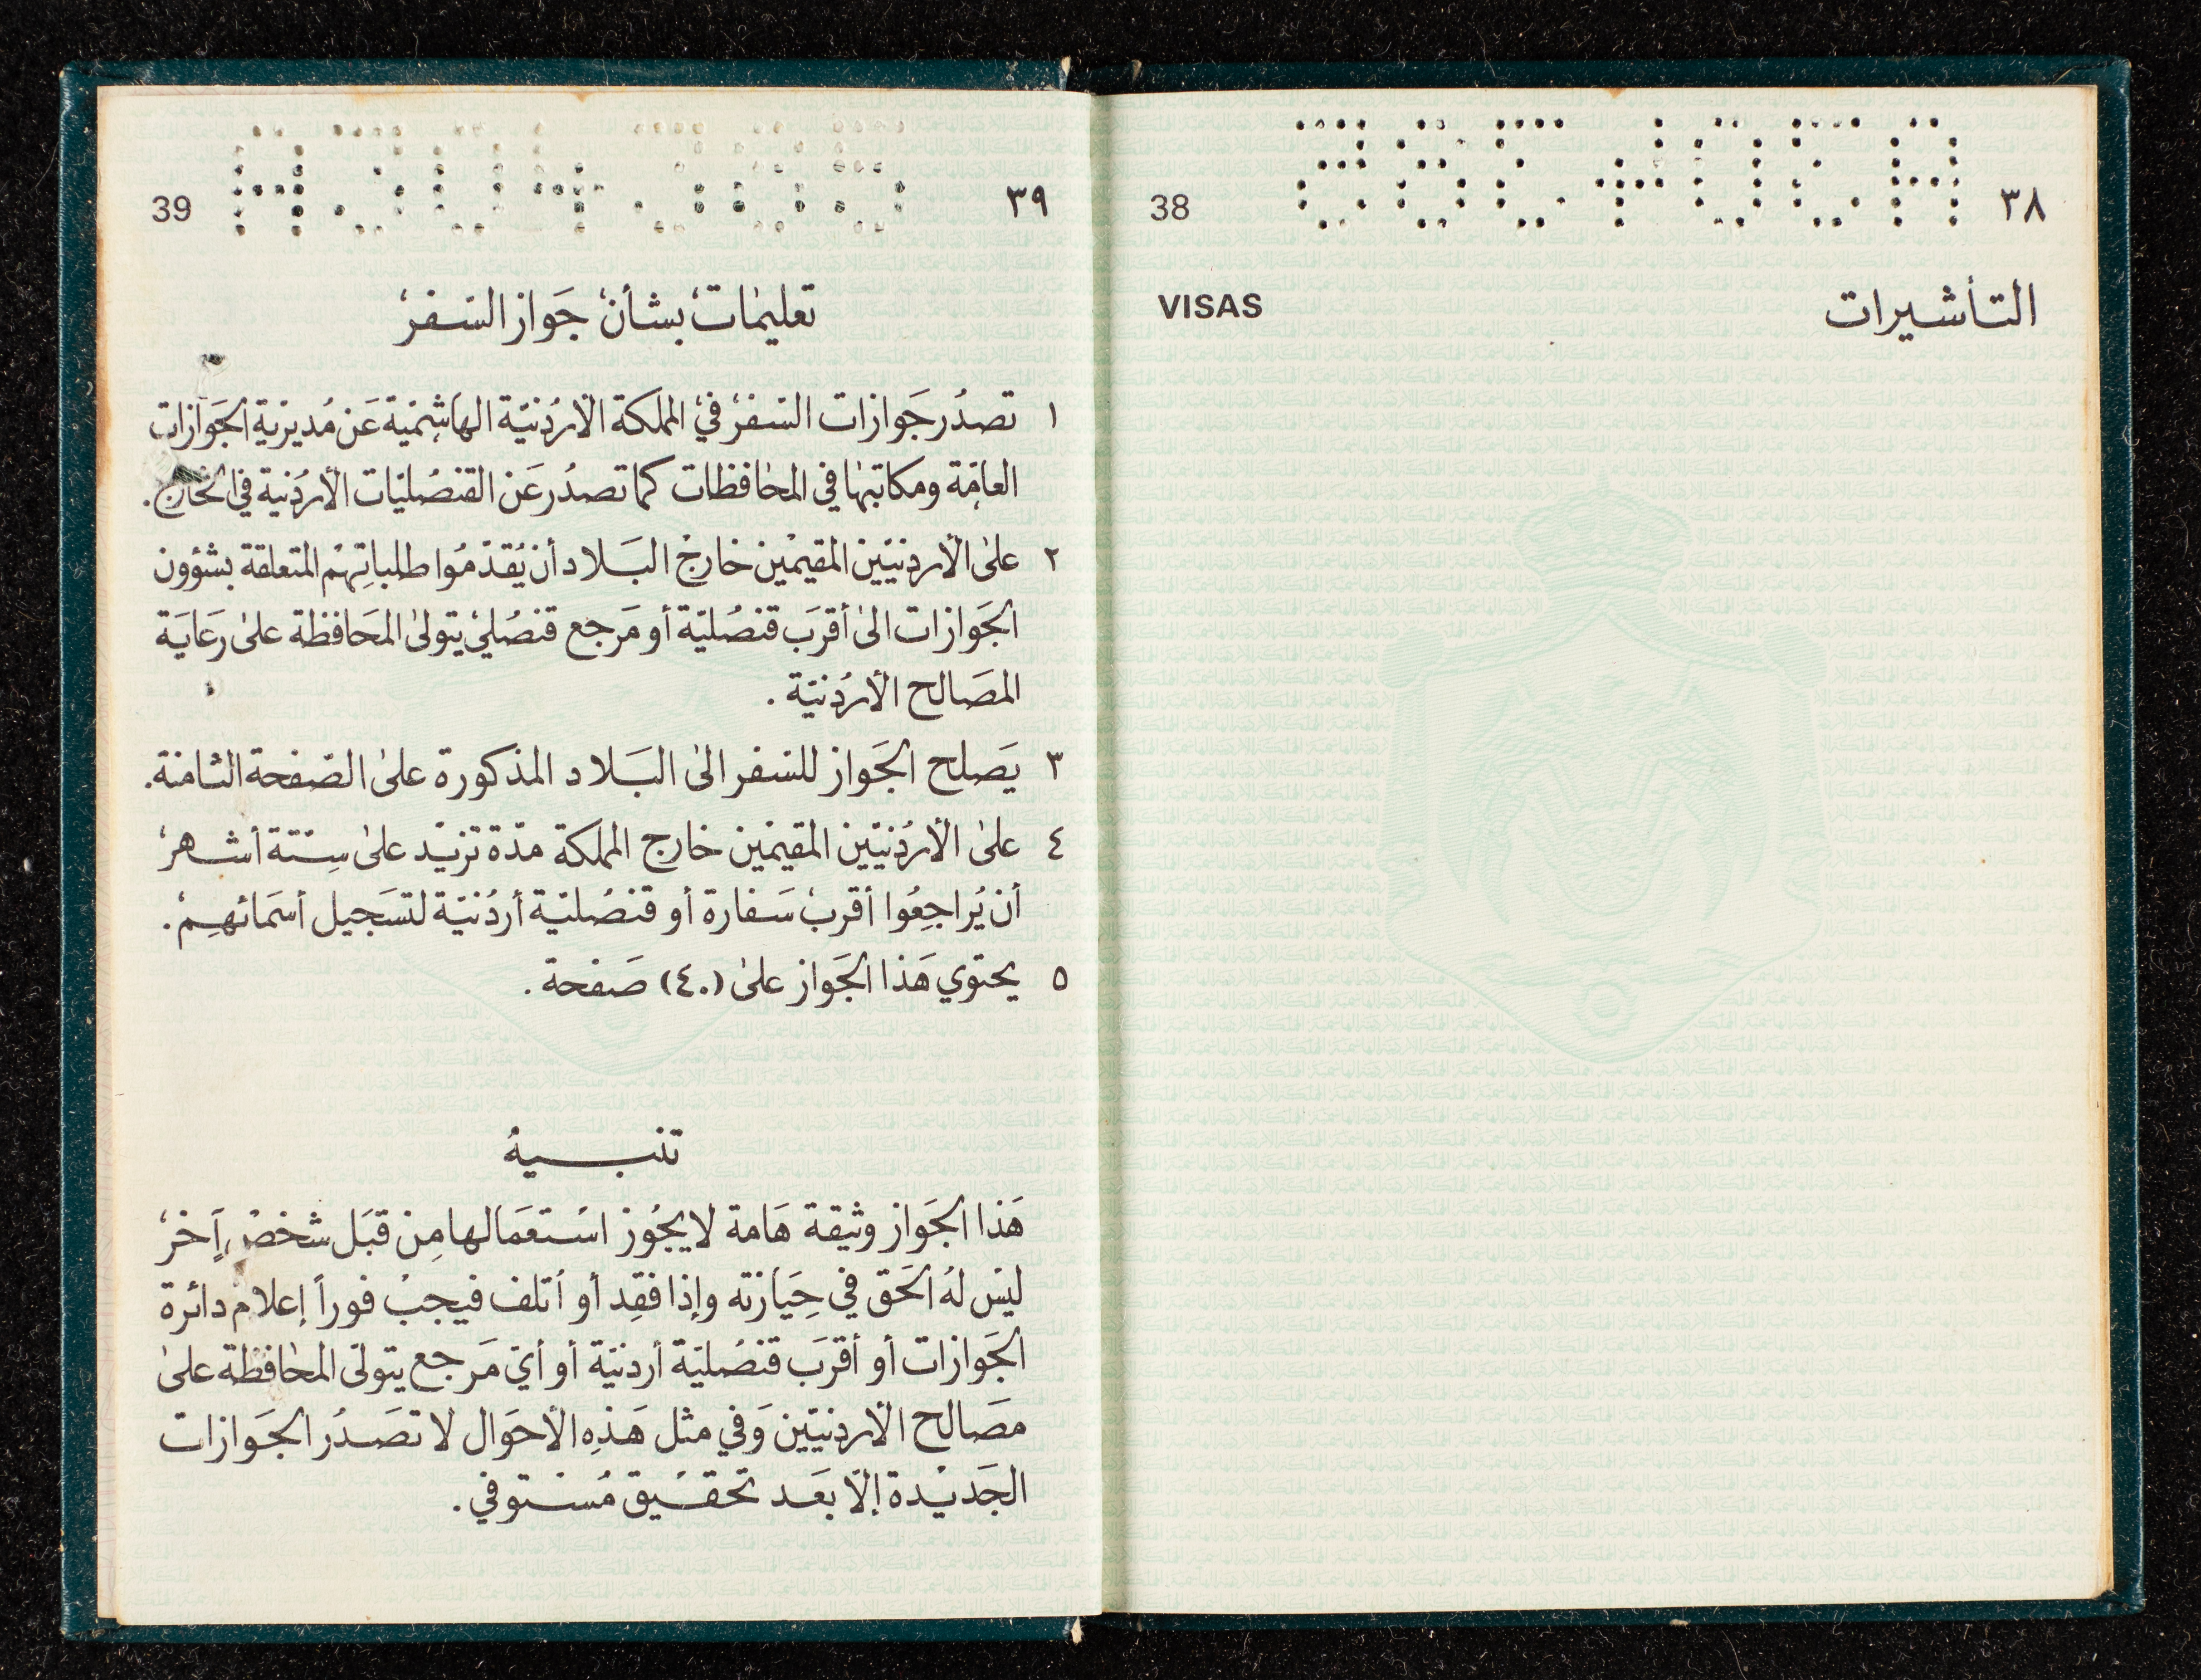 ٣٨
38
التأشيرات
VISAS
٣٩
39
تعليمات بشأن جواز السفر
١ تصدر جوازات السفر في المملكة الأردنية الهاشمية عن مديرية الجوازات
العامة ومكاتبها في المحافظات كما تصدر عن القنصليات الأردنية في الخارج.
٢ على الأردنيين المقيمين خارج البلاد أن يقدموا طلباتهم المتعلقة بشؤون
الجوازات الى أقرب قنصلية أو مرجع قنصلي يتولى المحافظة على رعاية
المصالح الأردنية.
٣ يصلح الجواز للسفر الى البلاد المذكورة على الصفحة الثامنة.
٤ على الأردنيين المقيمين خارج المملكة مدة تزيد على ستة أشهر
أن يراجعوا أقرب سفارة أو قنصلية أردنية لتسجيل أسمائهم.
٥ يحتوي هذا الجواز على (٤٠) صفحة.
تنبيه
هذا الجواز وثيقة هامة لا يجوز استعمالها من قبل شخص آخر
ليس له الحق في حيازته وإذا فقد أو أتلف فيجب فوراً إعلام دائرة
الجوازات أو أقرب قنصلية أردنية أو أي مرجع يتولى المحافظة على
مصالح الأردنيين وفي مثل هذه الأحوال لا تصدر الجوازات
الجديدة إلا بعد تحقيق مستوفي.